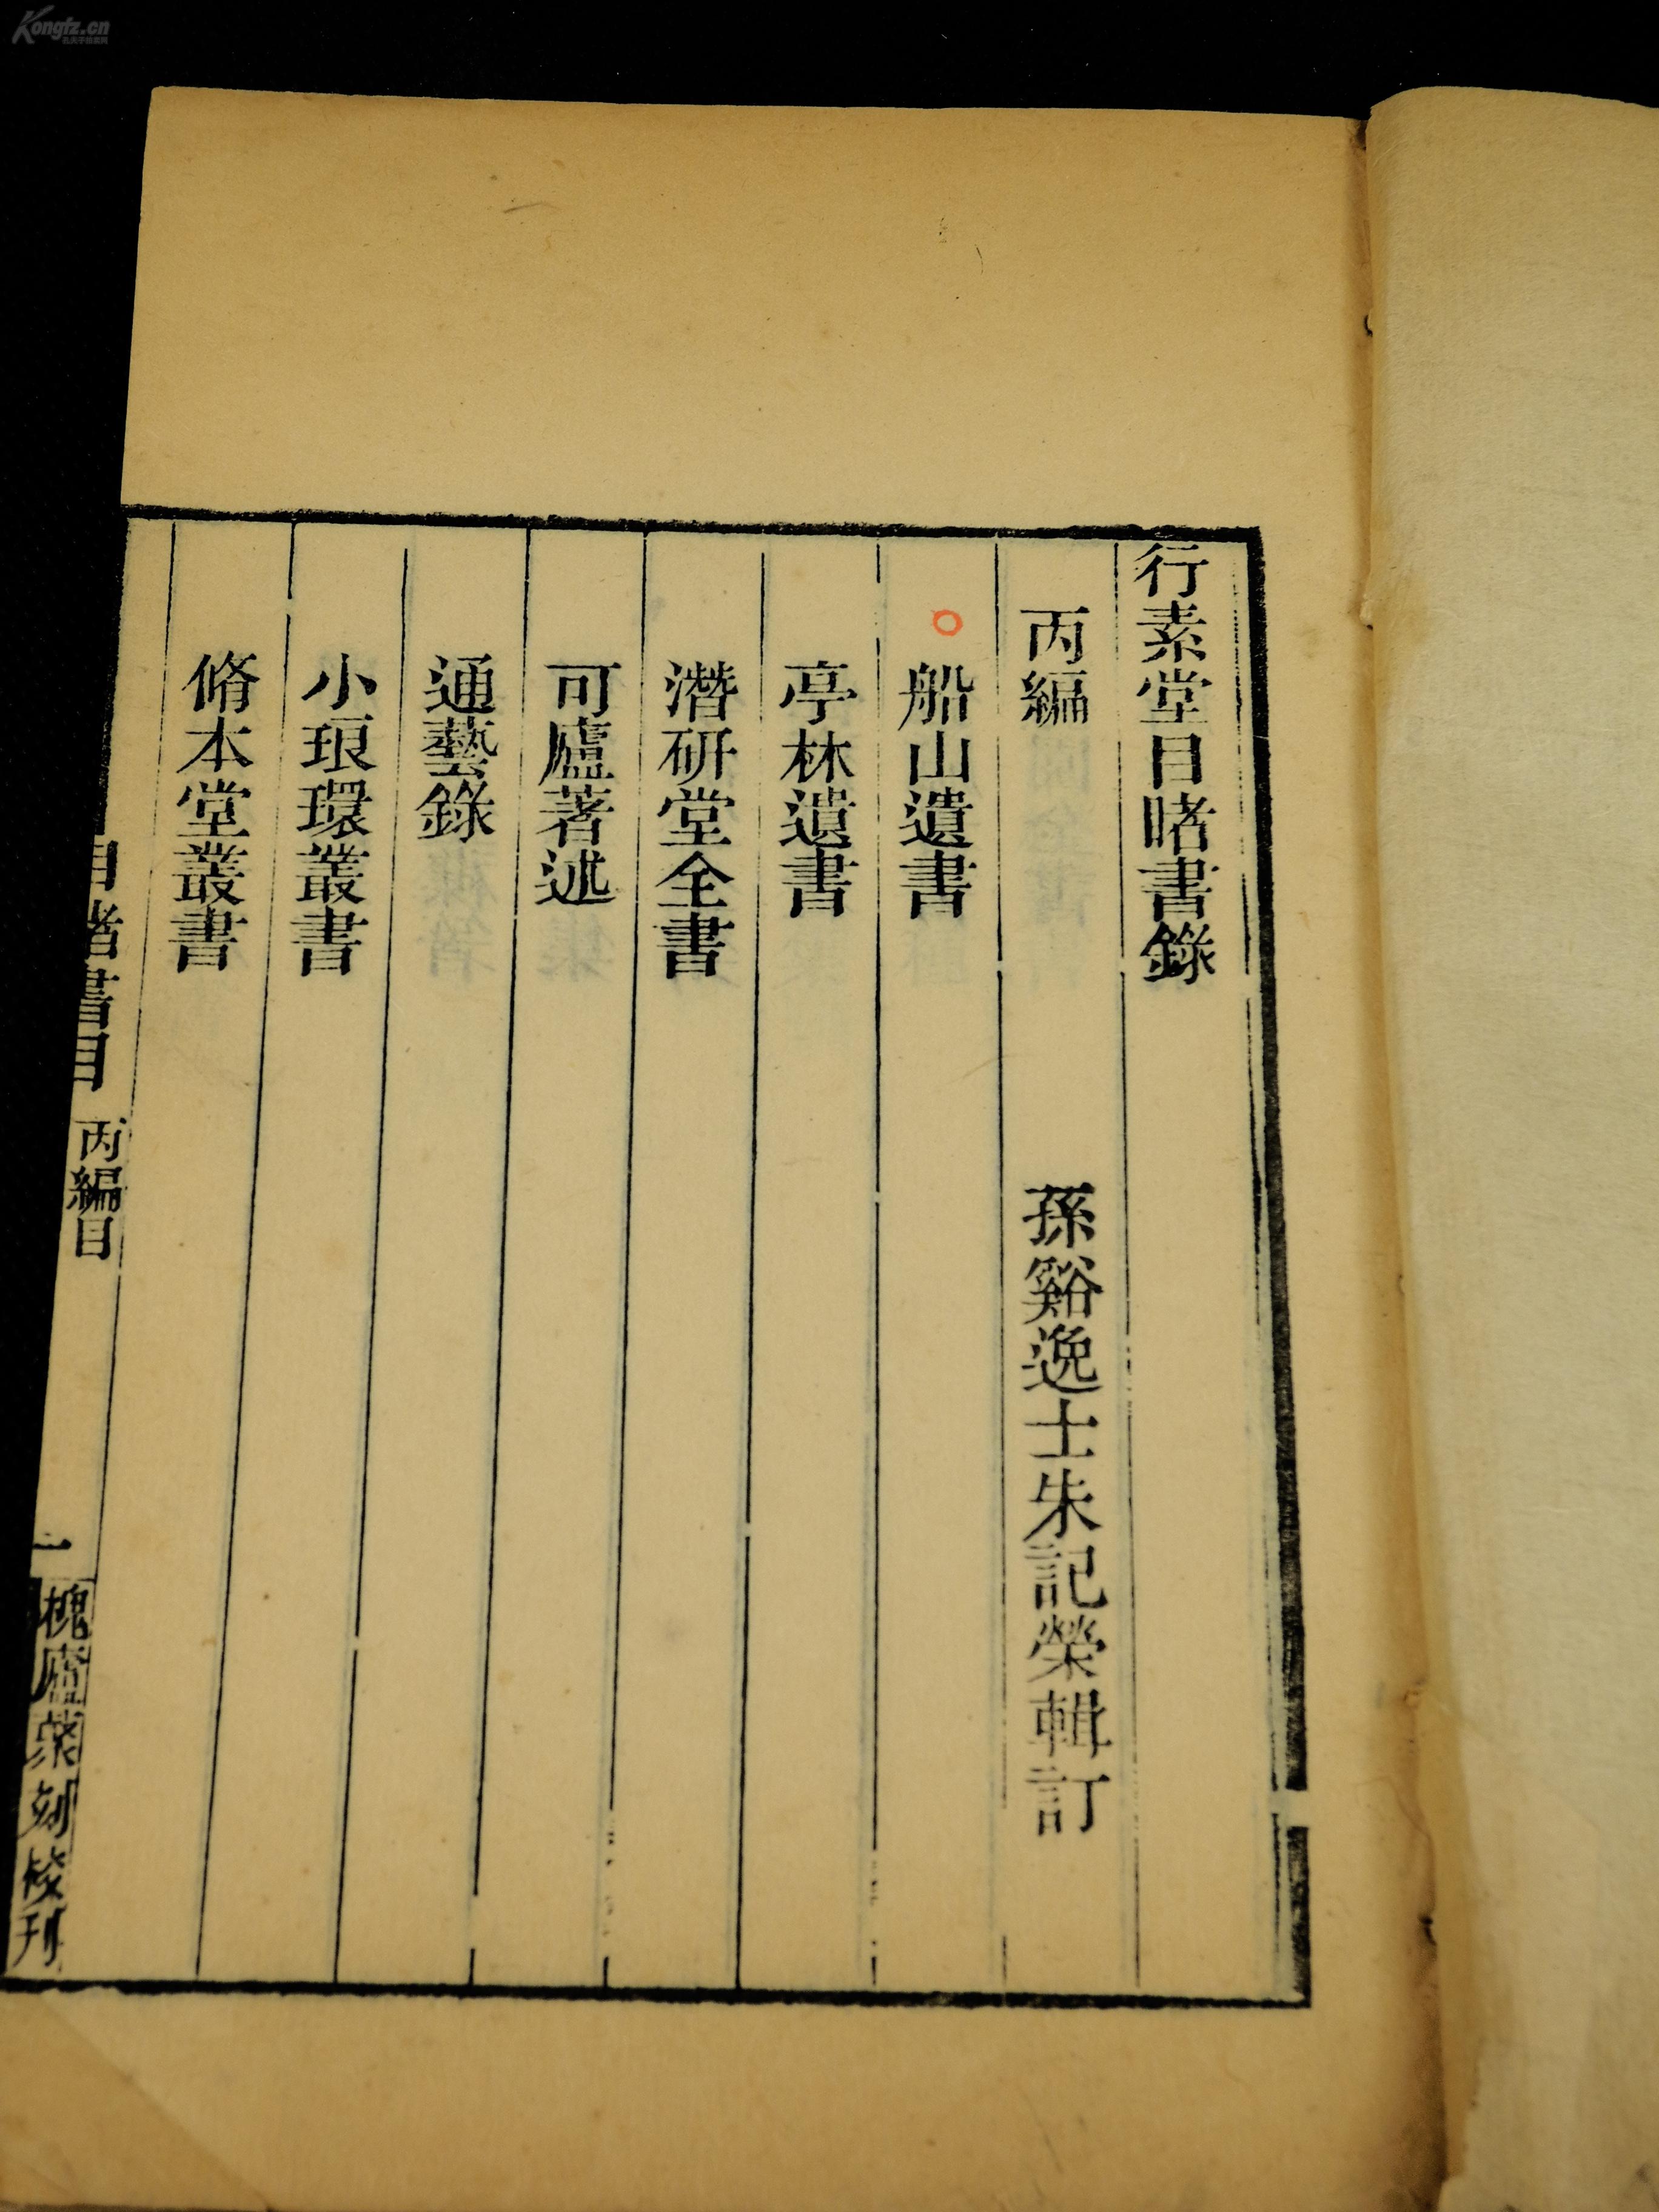 行素堂目睹書錄
丙編
孫谿逸士朱記榮輯訂
船山遺書
亭林遺書
潛研堂全書
可廬著述
通藝錄
小琅環叢書
脩本堂叢書
目睹書目 丙編目 一 槐廬叢刻校刊
Kongfz.cn